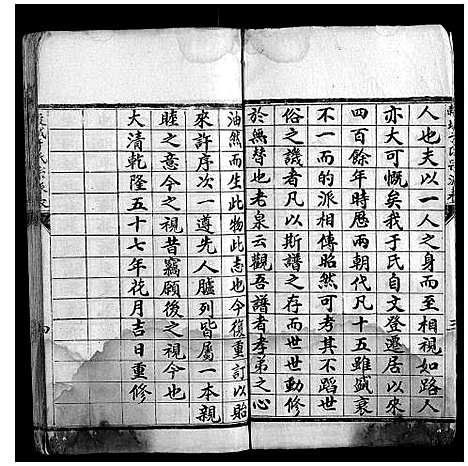 人也夫以一人之身而至相視如路人
亦大可慨矣我于氏自文登遷居以來
四百餘年時歷兩朝代凡十五雖盛衰
不一而的派相傳昭然可考其不蹈世
俗之譏者凡以斯譜之存而世世勤修
於無替也老泉云觀吾譜者孝弟之心
油然而生此物此志也今復重訂以貽
來許序次一遵先人臚列皆屬一本親
睦之意今之視昔竊願後之視今也
大清乾隆五十七年花月吉日重修